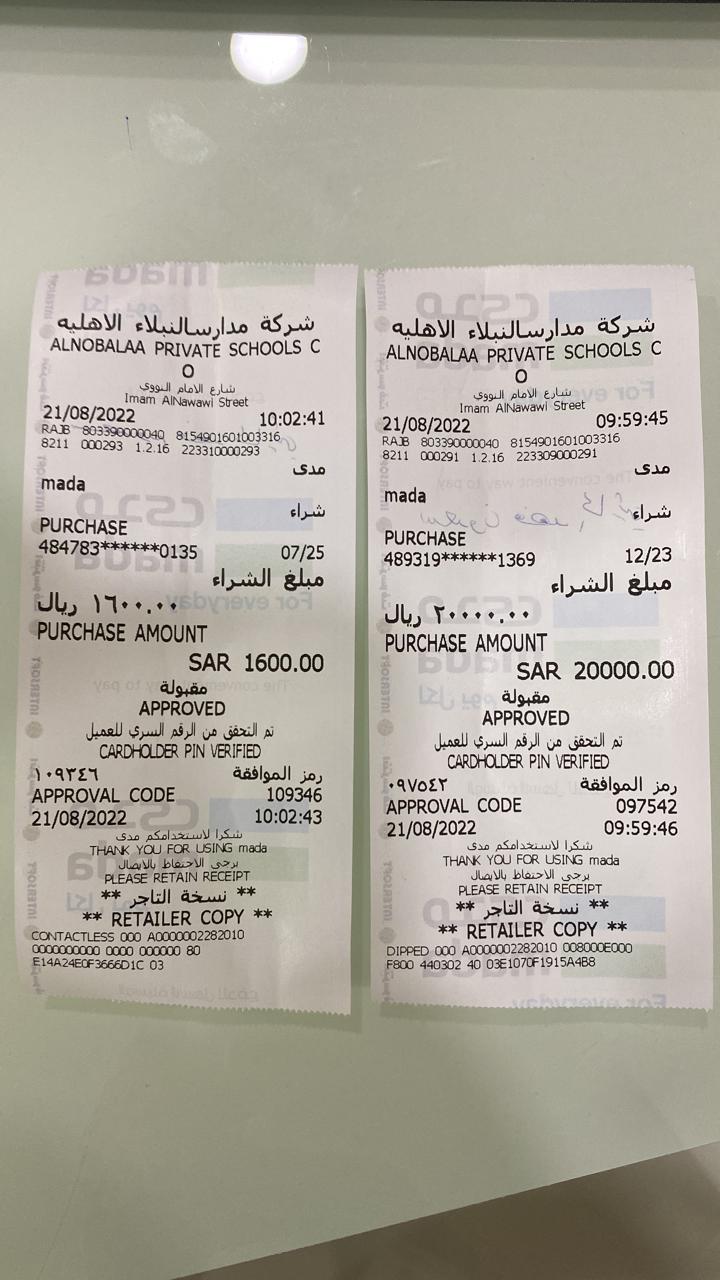 شركة مدارسالنبلاء الاهليه
ALNOBALAA PRIVATE SCHOOLS C
O
شارع الامام النووي
Imam AlNawawi Street
21/08/2022 10:02:41
RAJB 803390000040 8154901601003316
8211 000293 1.2.16 223310000293
مدى
mada
شراء
PURCHASE
484783******0135 07/25
مبلغ الشراء
١٦٠٠.٠٠ ريال
PURCHASE AMOUNT
SAR 1600.00
مقبولة
APPROVED
تم التحقق من الرقم السري للعميل
CARDHOLDER PIN VERIFIED
رمز الموافقة ١٠٩٣٤٦
APPROVAL CODE 109346
21/08/2022 10:02:43
شكرا لاستخدامكم مدى
THANK YOU FOR USING mada
يرجى الاحتفاظ بالايصال
PLEASE RETAIN RECEIPT
** نسخة التاجر **
** RETAILER COPY **
CONTACTLESS 000 A0000002282010
0000000000 0000 000000 80
E14A24E0F3666D1C 03
شركة مدارسالنبلاء الاهليه
ALNOBALAA PRIVATE SCHOOLS C
O
شارع الامام النووي
Imam AlNawawi Street
21/08/2022 09:59:45
RAJB 803390000040 8154901601003316
8211 000291 1.2.16 223309000291
مدى
mada
شراء
PURCHASE
489319******1369 12/23
مبلغ الشراء
٢٠٠٠٠.٠٠ ريال
PURCHASE AMOUNT
SAR 20000.00
مقبولة
APPROVED
تم التحقق من الرقم السري للعميل
CARDHOLDER PIN VERIFIED
رمز الموافقة ٠٩٧٥٤٢
APPROVAL CODE 097542
21/08/2022 09:59:46
شكرا لاستخدامكم مدى
THANK YOU FOR USING mada
يرجى الاحتفاظ بالايصال
PLEASE RETAIN RECEIPT
** نسخة التاجر **
** RETAILER COPY **
DIPPED 000 A0000002282010 008000E000
F800 440302 40 03E1070F1915A4B8